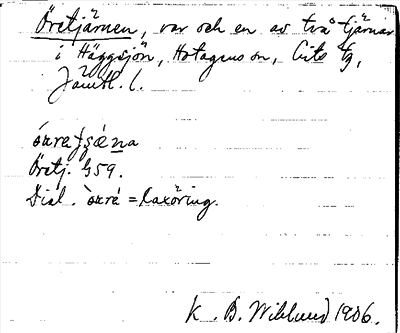 Öretjärnen, var och en av två tjärnar
i Häggsjön, Hotagens sn, Lits tg,
Jämtl. l.
Öretj. G59.
Dial. = laxöring.
K. B. Wiklund 1906.